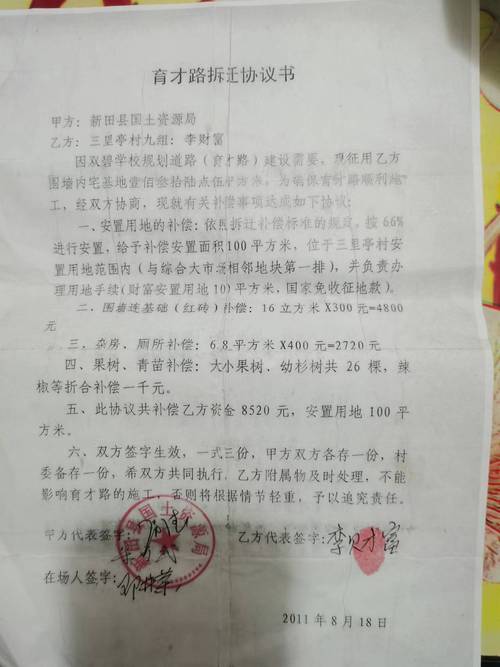 育才路拆迁协议书
甲方：新田县国土资源局
乙方：三里亭村九组：李财富
因双碧学校规划道路（育才路）建设需要，现征用乙方
围墙内宅基地壹佰叁拾陆点伍平方米，为确保育才路顺利施
工，经双方协商，现就有关补偿事项达成如下协议：
一、安置用地的补偿：依照拆迁补偿标准的规定，按 66%
进行安置，给予补偿安置面积 100 平方米，位于三里亭村安
置用地范围内（与综合大市场相邻地块第一排），并负责办
理用地手续(财富安置用地 10)平方米，国家免收征地款）。
二、围墙连基础（红砖）补偿：16 立方米 X300 元=4800
元
三、杂房、厕所补偿：6.8 平方米 X400 元=2720 元
四、果树、青苗补偿：大小果树、幼杉树共 26 棵，辣
椒等折合补偿一千元。
五、此协议共补偿乙方资金 8520 元，安置用地 100 平
方米。
六、双方签字生效，一式三份，甲方双方各存一份，村
委备存一份，希双方共同执行。乙方附属物及时处理，不能
影响育才路的施工，否则将根据情节轻重，予以追究责任。
甲方代表签字：
乙方代表签字：李财富
在场人签字：
新田县国土资源局
2011 年 8 月 18 日